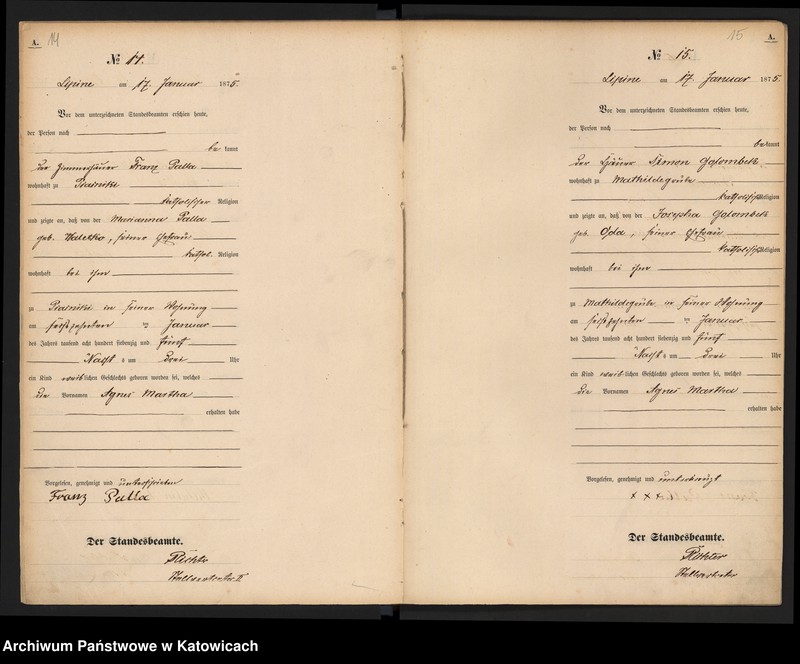 A. 14
№ 14.
Lipine am 17. Januar 1875.
Vor dem unterzeichneten Standesbeamten erschien heute,
der Person nach
be kannt
der Zimmerhäuer Franz Palla
wohnhaft zu Piasniki
katholischer Religion
und zeigte an, daß von der Marianna Palla
geb. seiner Ehefrau
kathol. Religion
wohnhaft bei ihm
zu Piasniki in seiner Wohnung
am sechszehnten Januar
des Jahres tausend acht hundert siebenzig und fünf
Nachts um drei Uhr
ein Kind weiblichen Geschlechts geboren worden sei, welches
die Vornamen Agnes Martha
erhalten habe
Vorgelesen, genehmigt und unterschrieben
Franz Palla
Der Standesbeamte.
Richter
15 A.
№ 15.
Lipine am 17 Januar 1875.
Vor dem unterzeichneten Standesbeamten erschien heute,
der Person nach
bekannt
der Häuer Simon Golombek
wohnhaft zu Mathildegrube
katholischer Religion
und zeigte an, daß von der Josepha Golombek
geb. Opda, seiner Ehefrau
katholischer Religion
wohnhaft bei ihm
zu Mathildegrube in seiner Wohnung
am sechszehnten Januar
des Jahres tausend acht hundert siebenzig und fünf
Nachts um drei Uhr
ein Kind weiblichen Geschlechts geboren worden sei, welches
die Vornamen Agnes Martha
erhalten habe
Vorgelesen, genehmigt und unterkreuzt
x x x
Der Standesbeamte.
Richter
Archiwum Państwowe w Katowicach